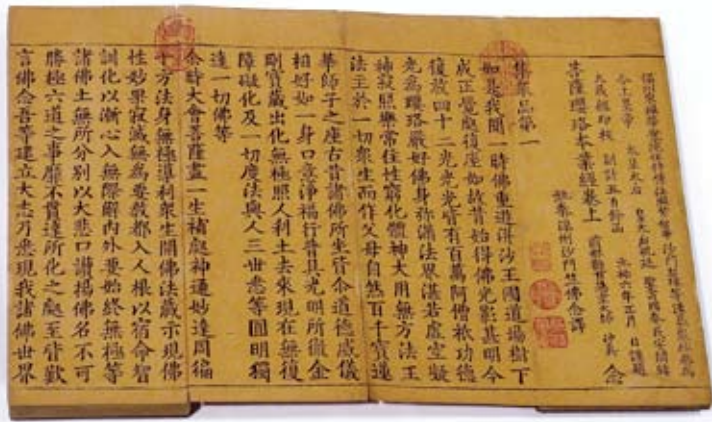 今上皇帝 太皇太后
大藏經印板 副計五百餘函 元祐六年正月 日謹題
菩薩瓔珞本業經卷上
姚秦涼州沙門竺佛念譯
集眾品第一
如是我聞一時佛重遊洴沙王國道場樹下
成正覺處復座如故昔始得佛光影甚明今
復放四十二光光光皆有百萬阿僧祇功德
光為瓔珞嚴好佛身弥滿法界湛若虛空凝
神寂照樂常住性窮化體神大用無方法王
法主於一切衆生而作父母自然百千寶蓮
華師子之座古昔諸佛所坐皆令道德威儀
相好如一身口意淨福行普具光明所徹金
剛寶藏出化無極照人利土去來現在無復
障礙化及一切度法與人三世悉等圓明獨
達一切佛等
尒時大會菩薩盡一生補處神通妙達周徧
十方法身無極導利衆生開佛法藏示現佛
性妙果寂滅無為要教都入人根以宿命智
訓化以漸心入無際解內外要始終無極等
諸佛土無所分別以大悲口讚揚佛名不可
勝極六道之事靡不貫達所化之處至皆歎
言佛念吾等建立大志乃悉現我諸佛世界